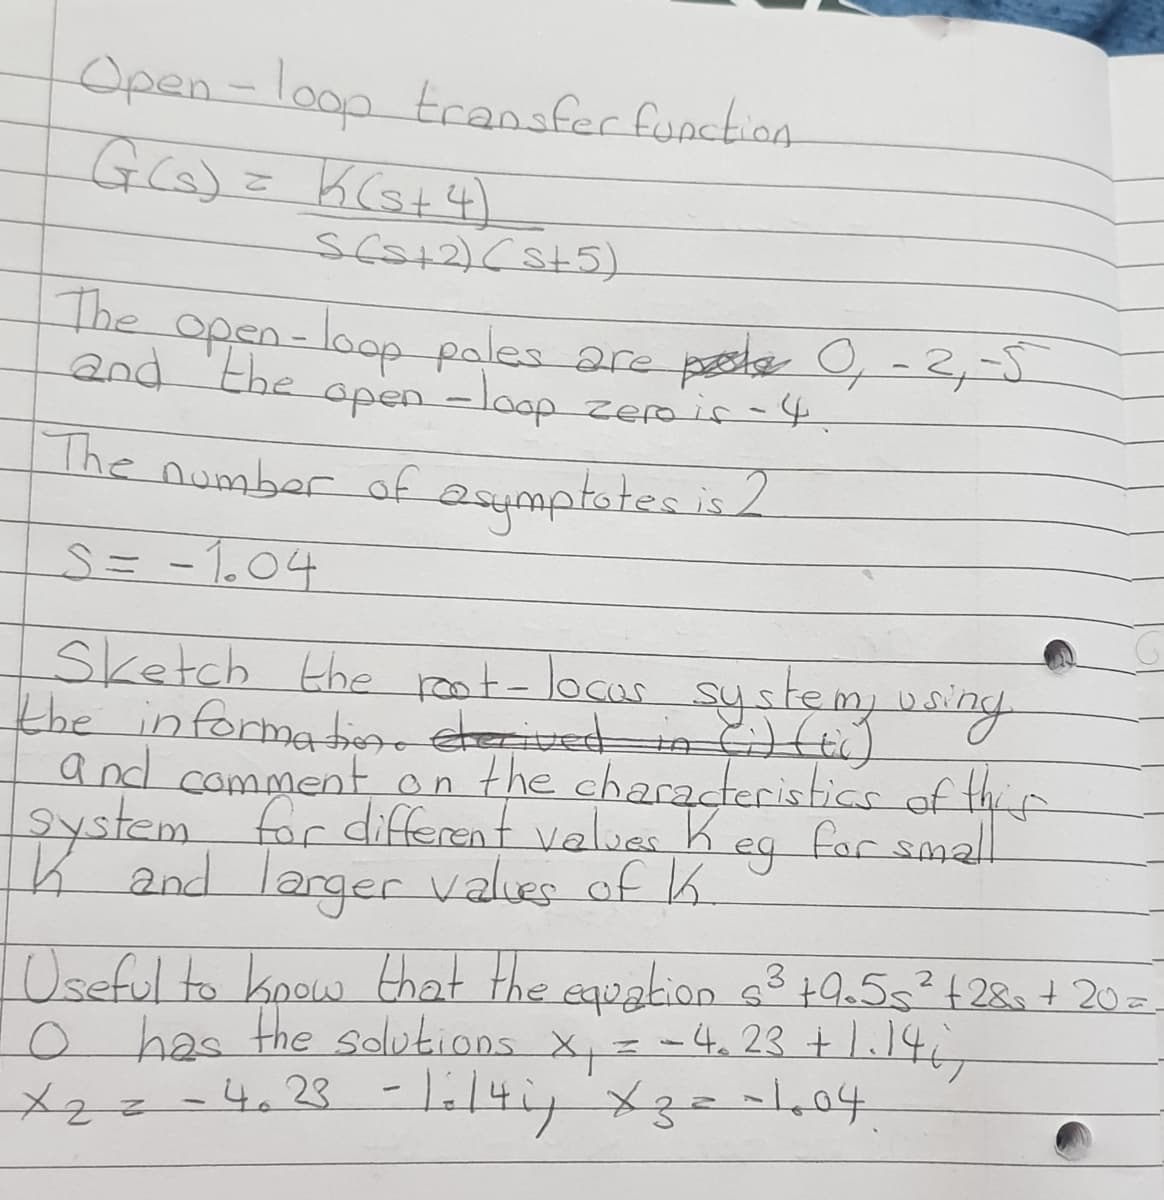 Open-loop transfer function
G(s) = K(s+4)
s(s+2)(s+5)
The open-loop poles are 0, -2, -5
and the open-loop zero is -4.
The number of asymptotes is 2
s = -1.04
Sketch the root-locus system, using
the information. derived in (i) (ii)
and comment on the characteristics of this
system for different values K eg for small
K and larger values of K.
Useful to know that the equation s³ + 9.5s² + 28s + 20 =
0 has the solutions x₁ = -4.23 + 1.14i,
x₂ = -4.23 - 1.14i, x₃ = -1.04.